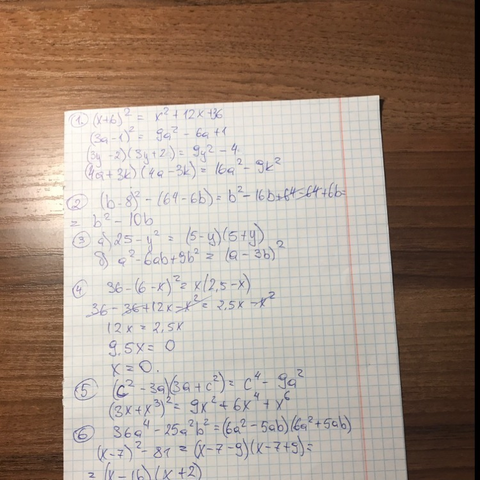 1. (x+6)² = x²+12x+36
(3a-1)² = 9a² - 6a+1
(3y-2)(3y+2) = 9y² - 4
(4a+3k)(4a-3k) = 16a² - 9k²
2 (b-8)² - (64-6b) = b² - 16b+64-64+6b=
= b² - 10b
3 а) 25 - y² = (5-y)(5+y)
б) a² - 6ab+9b² = (a-3b)²
4 36-(6-x)² = x(2,5-x)
36 - 36+12x-x² = 2,5x - x²
12x = 2,5x
9,5x = 0
x = 0.
5 (c² - 3a)(3a+c²) = c⁴ - 9a²
(3x+x³)² = 9x²+6x⁴+x⁶
6 36a⁴ - 25a²b² = (6a² - 5ab)(6a²+5ab)
(x-7)² - 81 = (x-7-9)(x-7+9)=
= (x-16)(x+2)